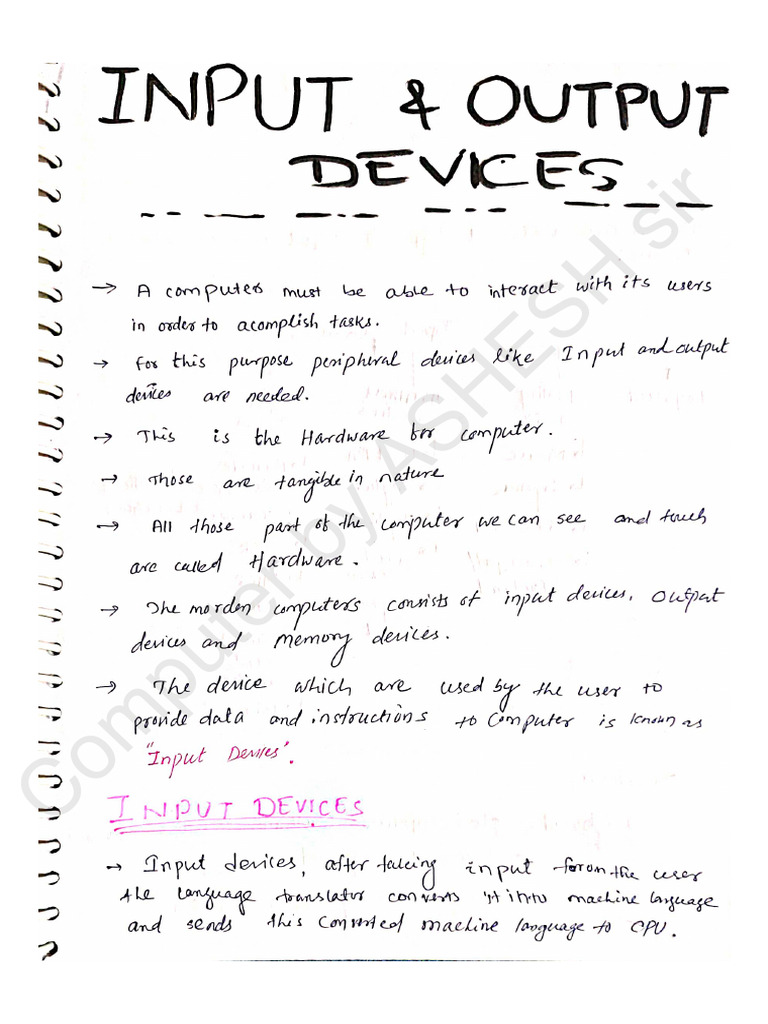 INPUT & OUTPUT
DEVICES
→ A computer must be able to interact with its users
in order to acomplish tasks.
→ for this purpose peripheral devices like Input and output
devices are needed.
→ This is the Hardware for computer.
→ Those are tangible in nature
→ All those part of the computer we can see and touch
are called Hardware.
→ The morden computers consists of input devices, output
devices and memory devices.
→ The device which are used by the user to
provide data and instructions to computer is known as
"Input Devies'.
INPUT DEVICES
→ Input devices, after taking input form the user
the language translator converts it into machine language
and sends this converted machine language to CPU.
Computer by ASHESH sir